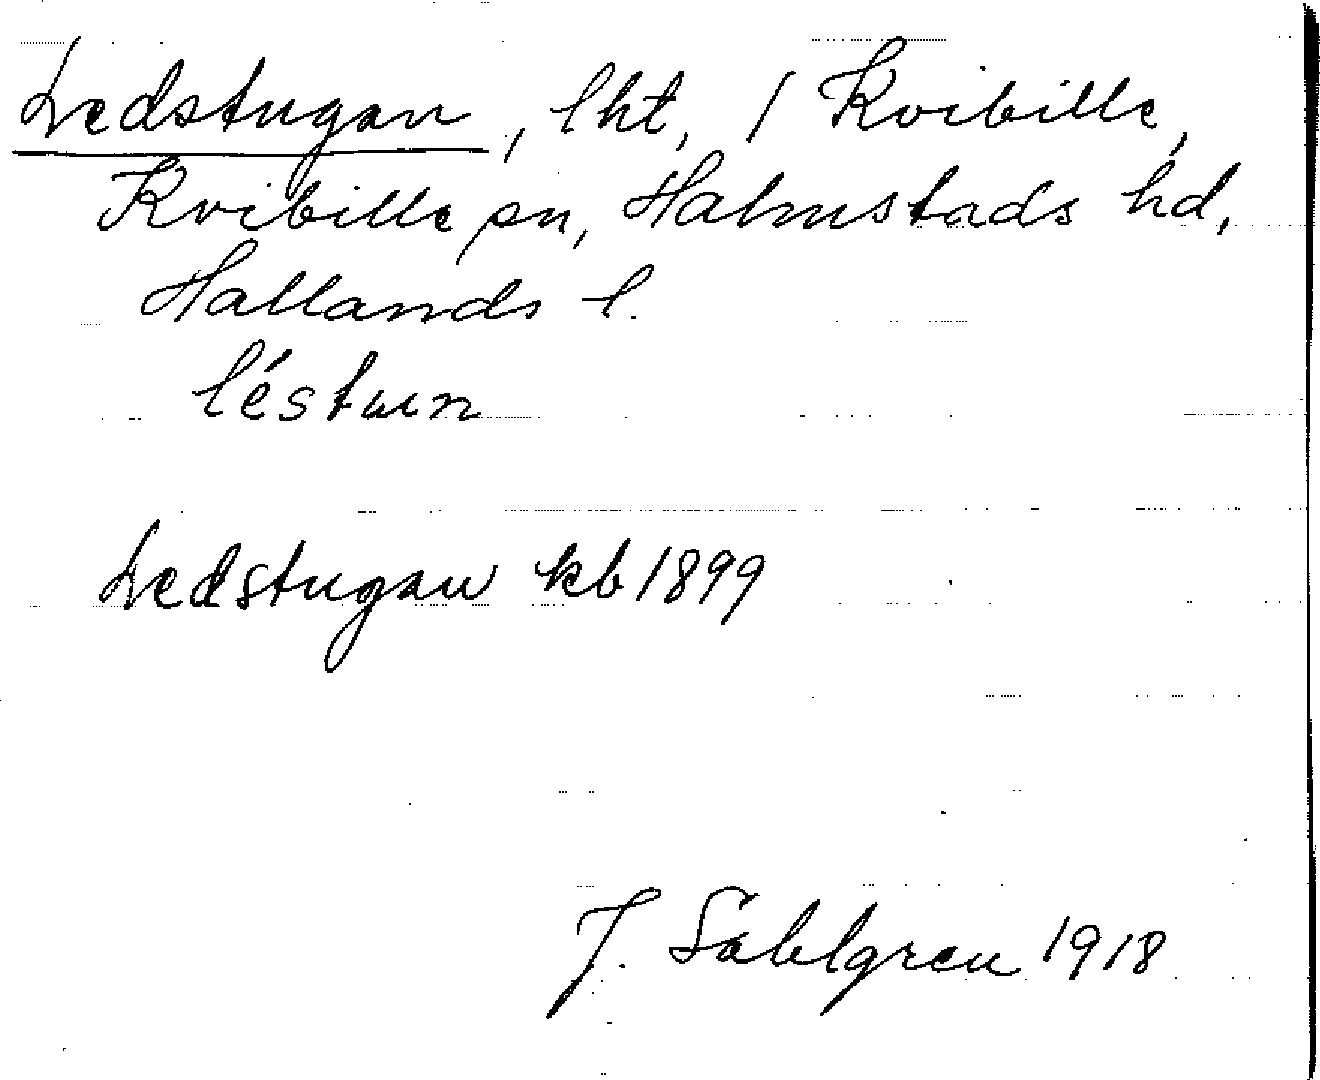 Ledstugan, lht, / Kvibille,
Kvibille sn, Halmstads hd,
Hallands l.
léstuın
Ledstugan kb 1899
J. Sahlgren 1918